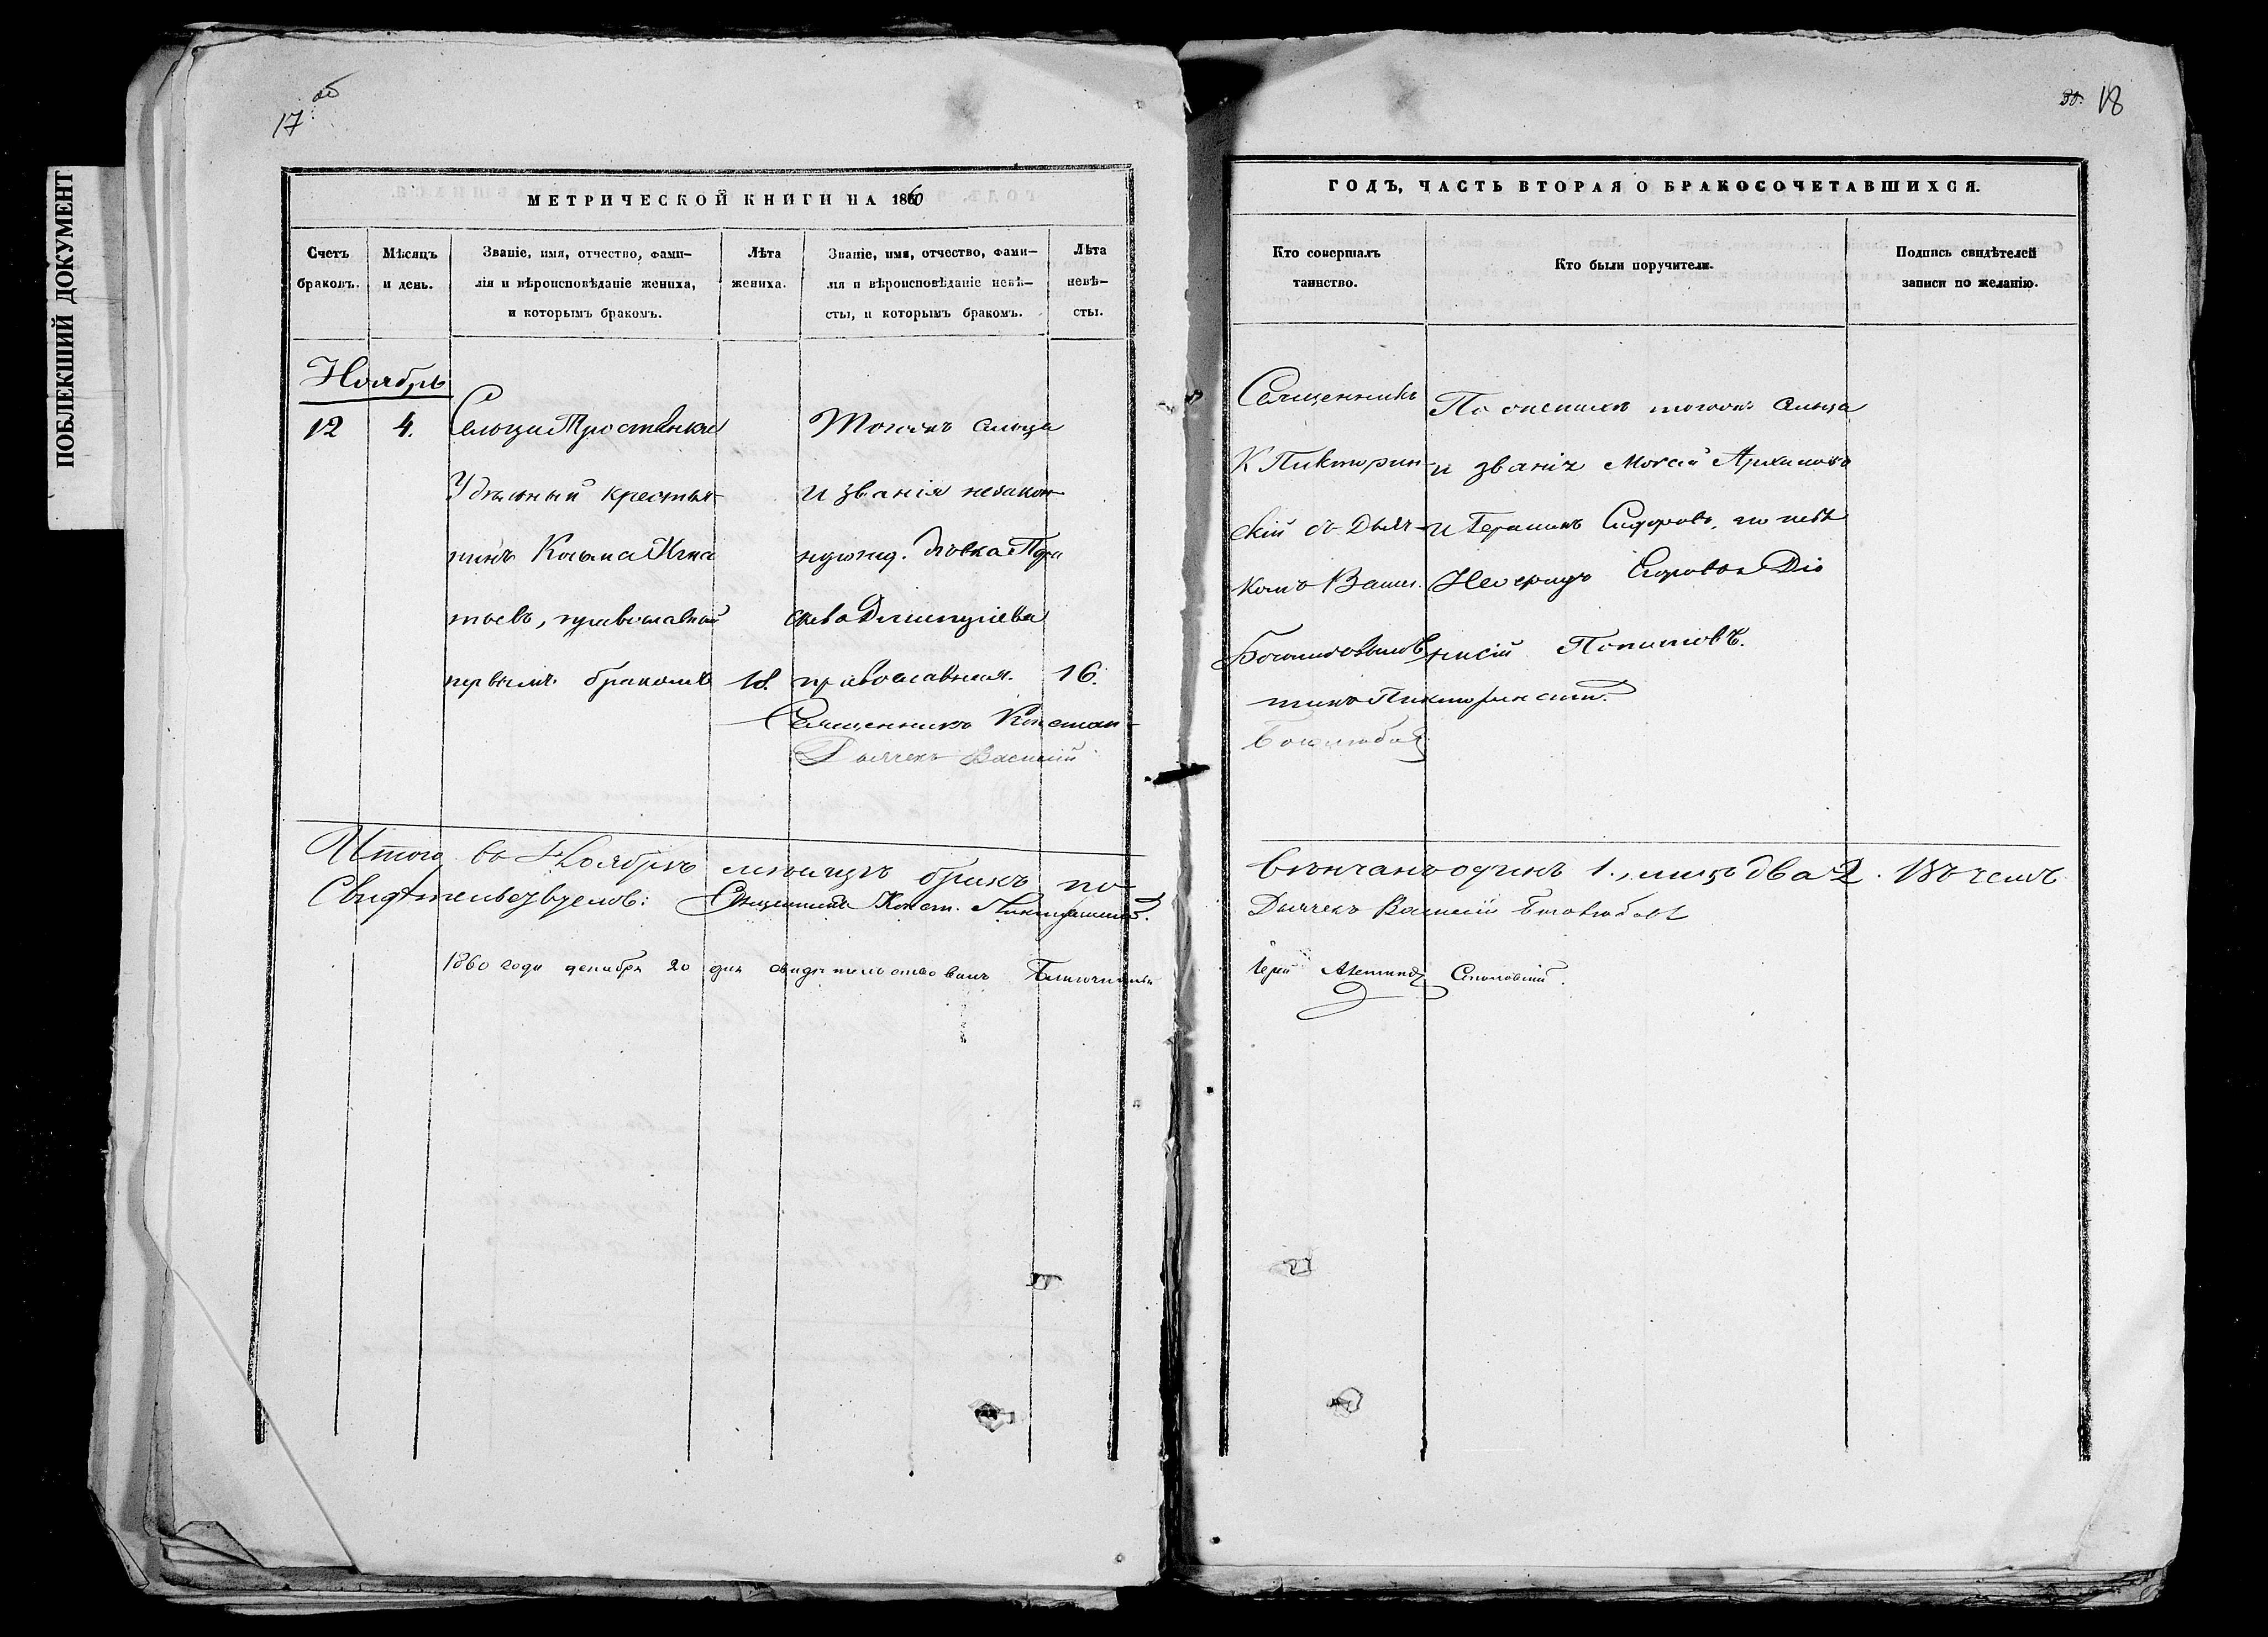 ПОБЛЕКШИЙ ДОКУМЕНТ
17 об
МЕТРИЧЕСКОЙ КНИГИ НА 1860
Счетъ браковъ.
Мѣсяцъ и день.
Званіе, имя, отчество, фами-
лія и вѣроисповѣданіе жениха,
и которымъ бракомъ.
Лѣта жениха.
Званіе, имя, отчество, фами-
лія и вѣроисповѣданіе невѣ-
сты, и которымъ бракомъ.
Лѣта невѣ-
сты.
Ноябрь
12
4.
Сельца Тростянки
Удѣльный крестья-
нинъ Косьма Игна
тьевъ, православный
первымъ бракомъ
18.
Тогожъ сельца
и званія незакон-
норожд. дѣвка Пра
сковья
православная.
16.
Священникъ Констан-
Дьячекъ Василій
Итого въ Ноябрѣ мѣсяцѣ бракъ по-
Свидѣтельствуемъ: Священникъ Конст.
1860 года декабря 20 дня свидѣтельствовалъ Благочинный
30. 18
ГОДЪ, ЧАСТЬ ВТОРАЯ О БРАКОСОЧЕТАВШИХСЯ.
Кто совершалъ
таинство.
Кто были поручители.
Подпись свидѣтелей
записи по желанію.
Священникъ
К Пикторин-
скій съ Дьяч-
комъ Васил.
Боголюбовымъ
тинъ Пикторинскій.
Боголюбовъ
По женихѣ тогожъ сельца
и званія Мокей Архиповъ
и Герасимъ Сидоровъ, по невѣ
Егоровъ и Діо
нисій
вѣнчанъ одинъ 1., лицъ два 2. Въ чемъ
Дьячекъ Василій Боголюбовъ
Іерей Соколовскій.